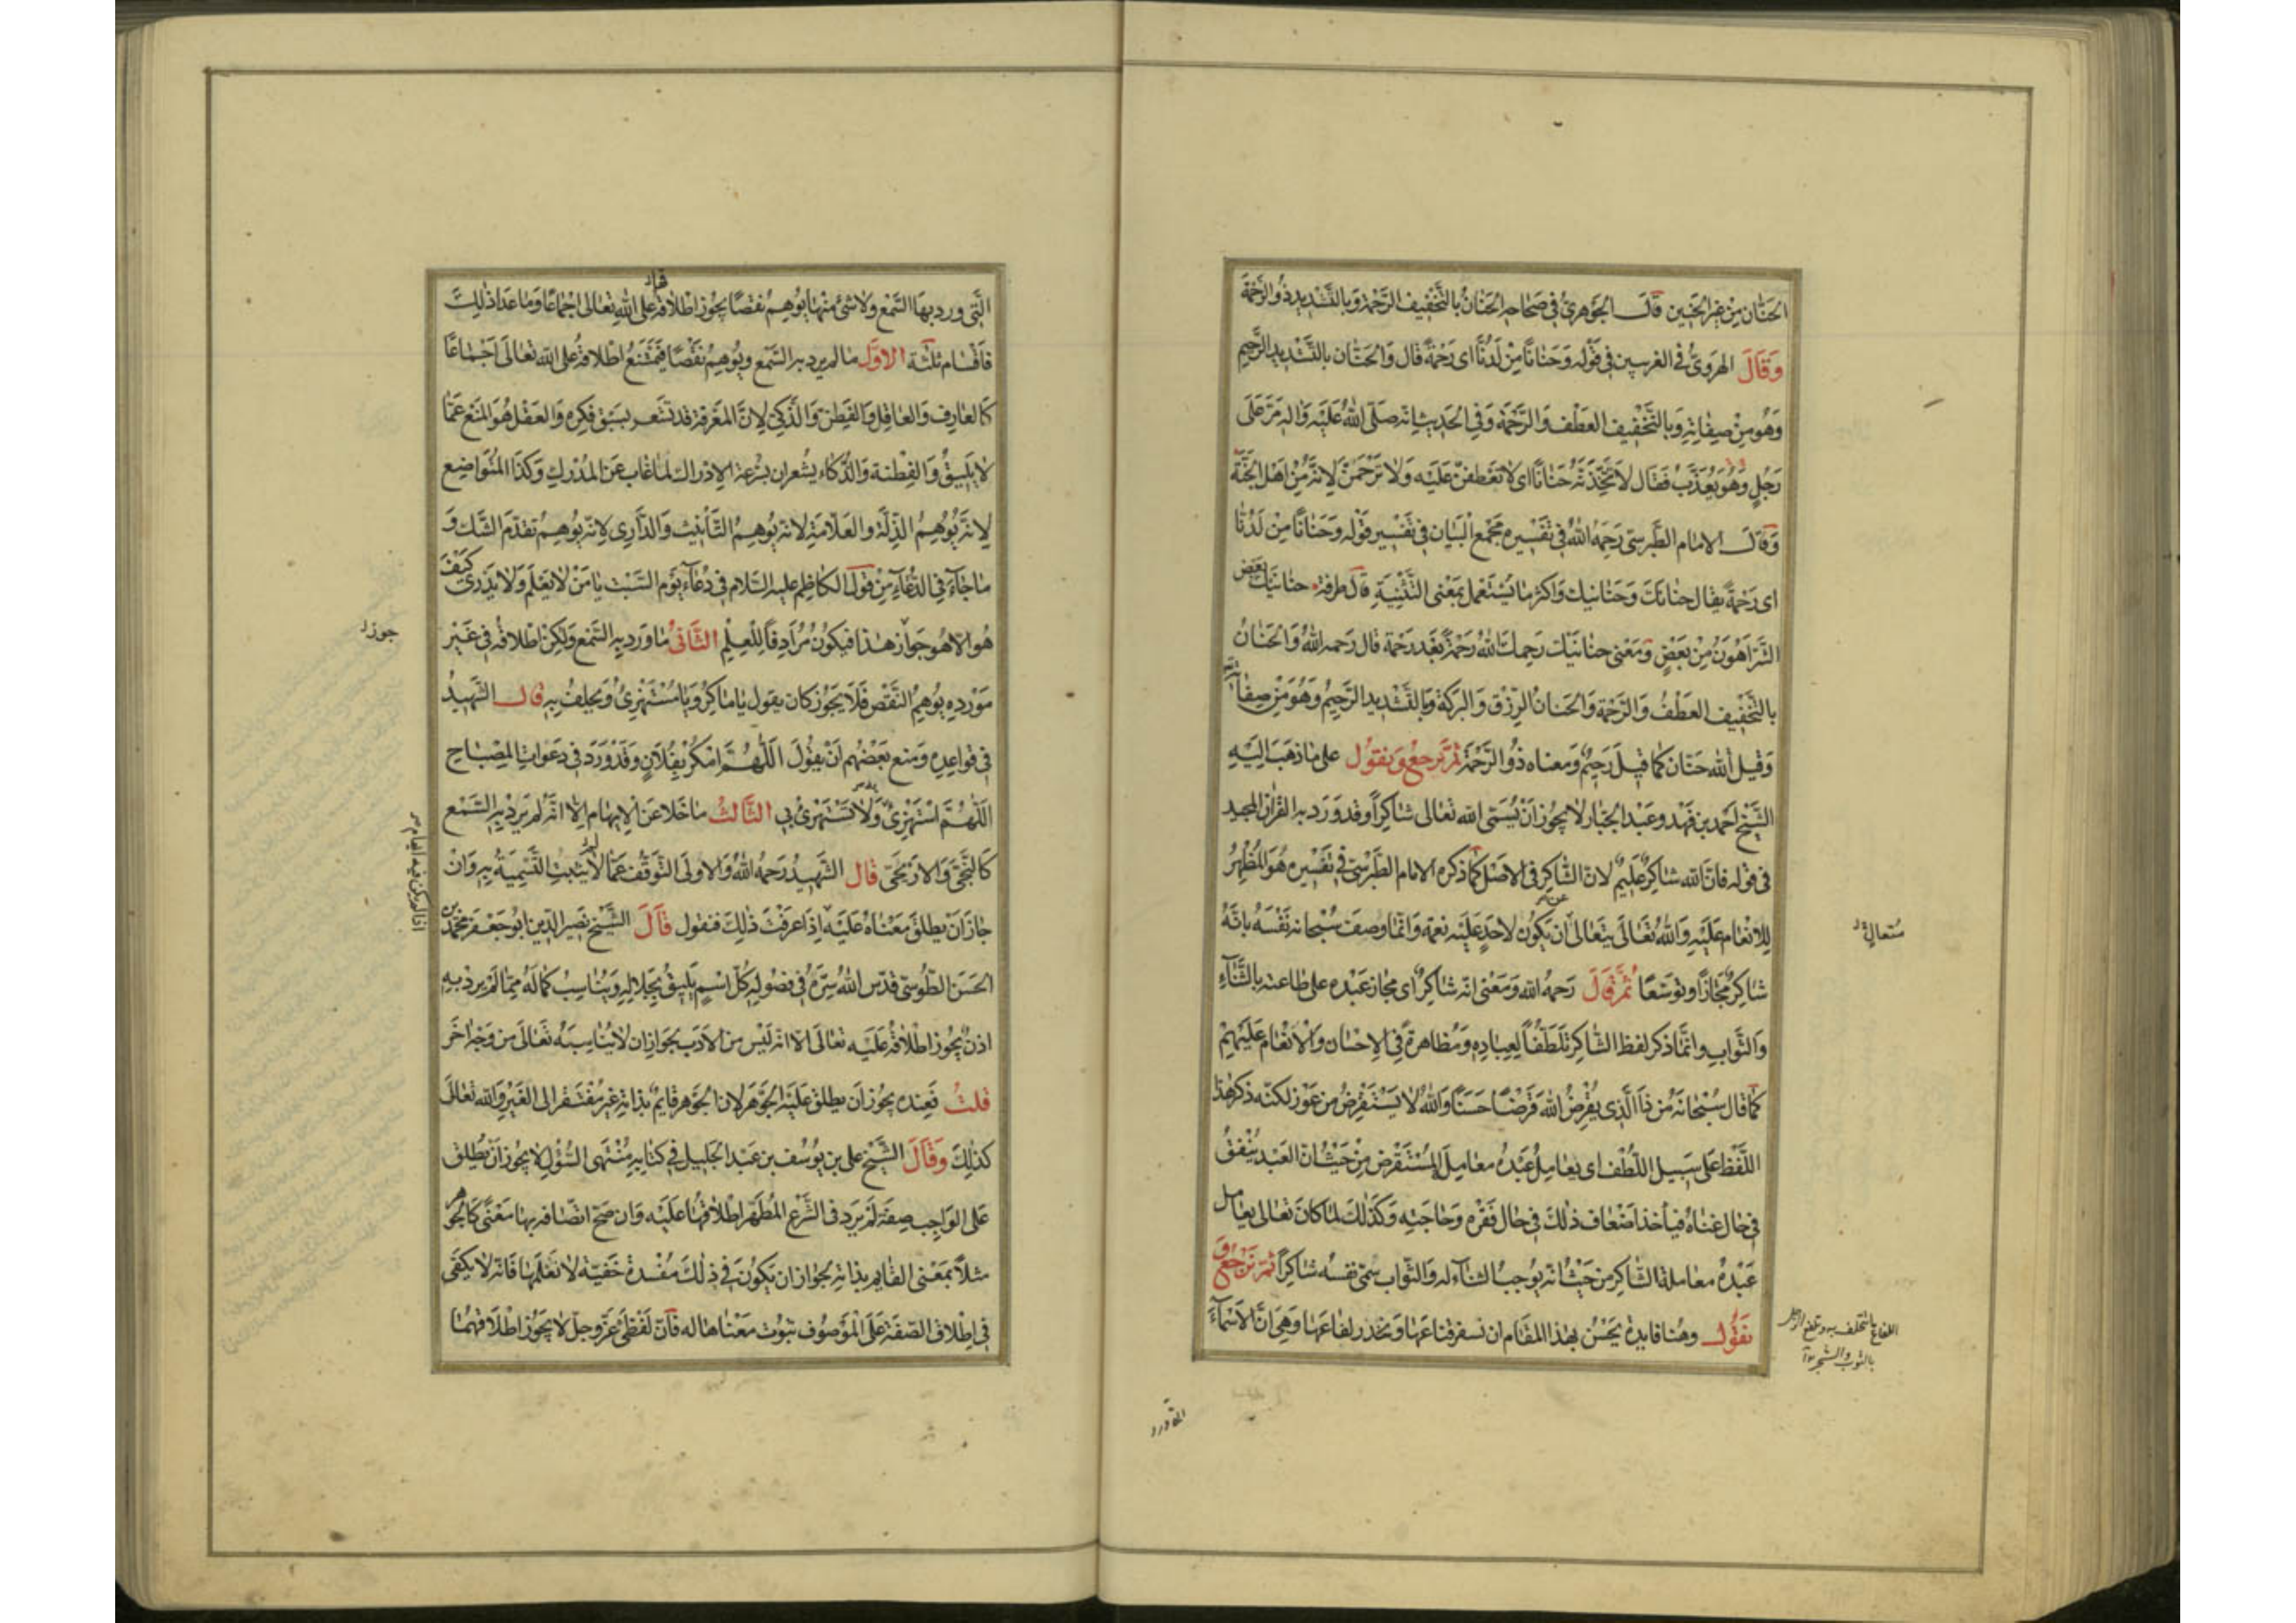 الحَنَّان مِنْ غيرالحَنين قَالَ الجَوهَرىُّ فى صحَاحه الحَنَانُ بالتَّخفِيف الرَّحَمة وَبالتَّشْدِيد ذُوالرَّحْمَة
وَقَالَ الهَرَوىُّ فى الغرسين فى قَوْله وَحَنَانًا مِنْ لَدُنَّا اى رَحْمَةً قال وَالحَنَّان بالتَّشْديد الرَّحِيم
وَهُو مِنْ صِفَاتِهِ وَبالتَّخْفِيف العَطْف وَالرَّحْمَة وَفى الحَديث انه صَلّى اللهُ عَلَيْه وَاله مَرَّ عَلَى
رَجُلٍ وَهُو يُعَذَّبُ فَقَال لاَتَّخِذَنَّهُ حَنَانًا اى لاَتعَطفَنّ عَلَيْه وَلاَتَرَحَّمَنَّ لِانَّهُ مِنْ اهَل الجنَّة
وَقَالَ الامام الطَّبرسىّ رَحِمَهُ اللهُ فى تفْسيره مَجْمَع البَيَان فى تفسير قوْله وَحَنَانًا مِنْ لَدُنّا
اى رَحْمَةً يقال حنانكَ وَحَنَانيك وَاكثر مَا يُسْتَعْمل بمَعْنى التَّثْنِيَةِ قال طرفة حنانَيك بَعْض
الشَّرّ اَهْوَنُ مِنْ بَعْضٍ وَمَعْنى حنَانَيْك رَحِمكَ اللهُ رَحْمَةً بَعْد رَحْمَة قال رَحمه اللهُ وَالحَنَانُ
بالتَّخْفِيف العَطْفُ وَالرَّحْمَة وَالحَنانُ الرِّزْقُ وَالبَرَكَة وَبالتَّشْدِيد الرَّحِيمُ وَهُوَ مِنْ صِفَاتِهِ
وَقيل اللهُ حَنَّان كمَا قيلَ رَحِيمٌ وَمَعناه ذُو الرَّحْمَة ثمَّ نرجعُ وَنقُولُ على مَا ذهَبَ اليَهِ
الشَّيخ احمَد بن فهْد وَعَبْد الجبّار لاَيجُوز اَنْ يُسَمَّى الله تعَالى شاكِراً وَقد وَرَدَ به القراٰن المجيد
فى قوله فانّ الله شاكِرٌ عَلِيمٌ لانّ الشَّاكِر فى الاصْل كمَا ذكره الامام الطَّبَرْسىّ فى تفْسيره هُوَ المُظْهِرُ
للاِنعَام عَلَيْه وَاللهُ تَعَالَى يتعَالى عن اَنْ يَكُون لاحَدٍ عَلَيْه نعمَة وَانّمَا وصَفَ سُبْحانه نَفْسَهُ بانَّهُ
شاكِرٌ مَجَازًا وَتوَسّعًا ثُمَّ قَالَ رَحمَهُ الله وَمَعْنى انّه شاكِرٌ اى مجازٍ عَبْده على طاعَته بالثَّنَاءِ
وَالثّوابِ وانَّمَا ذكر لفظ الشّاكِر تلَطُّفًا لِعِبادِهِ وَمُظاهرةً فى الاِحْسَان وَالاَنْعَام عَلَيْهِمْ
كَمَا قال سُبْحَانَهُ مَن ذَا الَّذِى يُقْرِضُ الله قَرْضًا حَسَنًا وَاللهُ لاَ يَسْتَقْرِضُ من عَوَز لكنّه ذكر هٰذا
اللَّفْظ عَلى سَبيل اللُّطْف اى يعَامِلُ عَبْدَهُ معَاملَة المُسْتَقْرِض مِنْ حَيْثُ انّ العَبْد يُنْفقُ
فى حَال غناهُ فيأخذ اَضْعَاف ذٰلكَ فى حَال فَقْره وَحَاجَتِه وَكَذٰلكَ لمّا كَانَ تعَالى يعَامل
عَبْدَهُ معَاملة الشَّاكِر مِن حَيْثُ انّه يُوجبُ الثناءَ له وَالثّواب سَمّى نفسه شاكِراً ثمّ نرجع و
نقُولُ وهُنا فايدة يَحْسُنُ بهٰذا المَقام ان نسفر قناعَها وَنحذر لفاعَها وَهِىَ انّ الاسْمَآءَ
متعالٍ
اللفاع ما يتلحف به وتلفع الرجل بالثوب والشجر
التى ورد
التَّى ورد بهَا السَّمْع ولاشئ منْهَا يُوهِمُ نقصًا يجُوز اطْلاقه على اللهِ تعَالى اجْمَاعًا وَمَا عَدَا ذٰلِكَ
فاَقسَام ثلثة الاَوَّل مَا لم يرد به السَّمْع ويُوهِمُ نَقْصًا فيمْتَنعُ اطْلاقهُ على اللهِ تعَالَى اجْمَاعًا
كالعَارف وَالعَاقِل وَالفَطِن وَالذَّكِىّ لاِنَّ المعْرفة قد تشعر بسَبْق فِكره وَالعَقْل هُوَ المنع عَمّا
لاَيَليقُ وَالفِطْنة وَالذَّكاء يُشعران بسُرعَة الاِدْراك لمَا غاب عَن المُدْرِك وَكذا المُتَوَاضِع
لاِنّهُ يُوهِمُ الذِّلَّة والعَلاَّمَة لانّه يُوهِمُ التّأنِيث وَالدّارِى لانّه يُوهِمُ تَقدّم الشَّك وَ
ما جَآءَ فى الدُّعَآءِ مِنْ قَول الكَاظِم عليه السَّلام فى دُعَآءِ يَوْم السَّبْت يَا مَنْ لاَيَعْلَم وَلاَيَدْرى كَيْفَ
هُو الاّ هُو جَوازُ هٰذا فيكُون مُرَادِفًا لِلْعِلْمِ الثَّانى مَا وَرَد بهِ السَّمْع وَلكن اطْلاقهُ فى غَيْر
مَوْردِه يُوهِمُ النَّقْص فَلاَ يجُوز كان يقول يَا مَاكِرُ وَيَا مُسْتَهْزِئُ وَيحلفُ بِه قال الشَّهِيدُ
فى قواعِدِه وَمنع بَعْضُهم اَنْ يقُولَ اللّٰهُمَّ امْكُرْ بِفُلانٍ وَقَدْ وَرَدَ فى دَعَواتِ المِصْبَاح
اللّٰهُمَّ اسْتَهْزِئْ وَلاَ تَسْتَهْزِئْ بى الثَّالثُ مَا خَلاَ عَنْ الاِيهَام اِلاّ انَّه لم يَردْ بهِ السَّمْع
كالنَّجىّ وَالارْيحَى قال الشَّهِيدُ رَحِمَهُ اللهُ وَالاولَى التَّوَقُّف عَمّا لم يثبت التَّسْمِيَةُ بِه وَانْ
جَازَ اَنْ يطلق مَعْنَاهُ عَلَيْه اِذَا عَرَفْتَ ذٰلِكَ فنقول قَالَ الشَّيْخ نصير الدّين ابُو جَعْفَر مُحَمَّد بن
الحَسَن الطُّوسىّ قدّس اللهُ سِرَّهُ فى فصُولِه كلّ اسْمٍ يَليقُ بجَلالِه وَيُنَاسِبُ كمَالَهُ ممّا لَمْ يرد به
اذنٌ يجُوز اطْلاَقهُ عَلَيْه تعَالَى الاّ انّه لَيْسَ من الاَدَب بجَواز ان لاَيُنَاسِبَهُ تعَالَى من وَجْه اٰخَر
قلتُ فَعِنْده يجُوز اَن يطلق عَلَيْه الجَوْهَر لانّ الجَوْهر قايمٌ بذاته غَيرُ مُفْتَقر الى الغَيْر وَالله تعَالَى
كذٰلِكَ وَقَالَ الشَّيْخ على بن يُوسُف بن عَبْد الجَليل فى كتابِه مُنْتَهى السُّؤل لاَيجُوز اَنْ يُطلق
عَلى الوَاجِب صِفَة لَمْ يَرد فى الشَّرْع المُطَهَّر اطْلاَقُهَا عَلَيْه وَان صَحّ اتّصَافه بهَا مَعْنىً كالجَوْهر
مثلاً بمَعْنى القَايِم بذاته لجَواز ان يَكُونَ فى ذٰلكَ مفْسدة خَفيّة لاَ نَعْلَمُهَا فَانّه لاَ يَكْفى
فى اِطْلاق الصّفَة عَلَى المَوْصُوف ثبُوت مَعْنَاها له فانّ لَفْظَىْ عَزّ وَجلّ لاَيجُوز اطْلاَقهُمَا
جوز
اذا لم يكن فيه ايهام